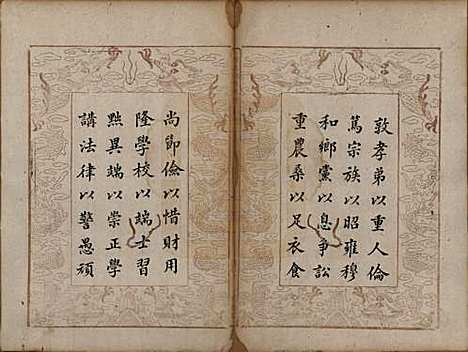 敦孝弟以重人倫
篤宗族以昭雍穆
和鄉黨以息爭訟
重農桑以足衣食
尚節儉以惜財用
隆學校以端士習
黜異端以崇正學
講法律以警愚頑